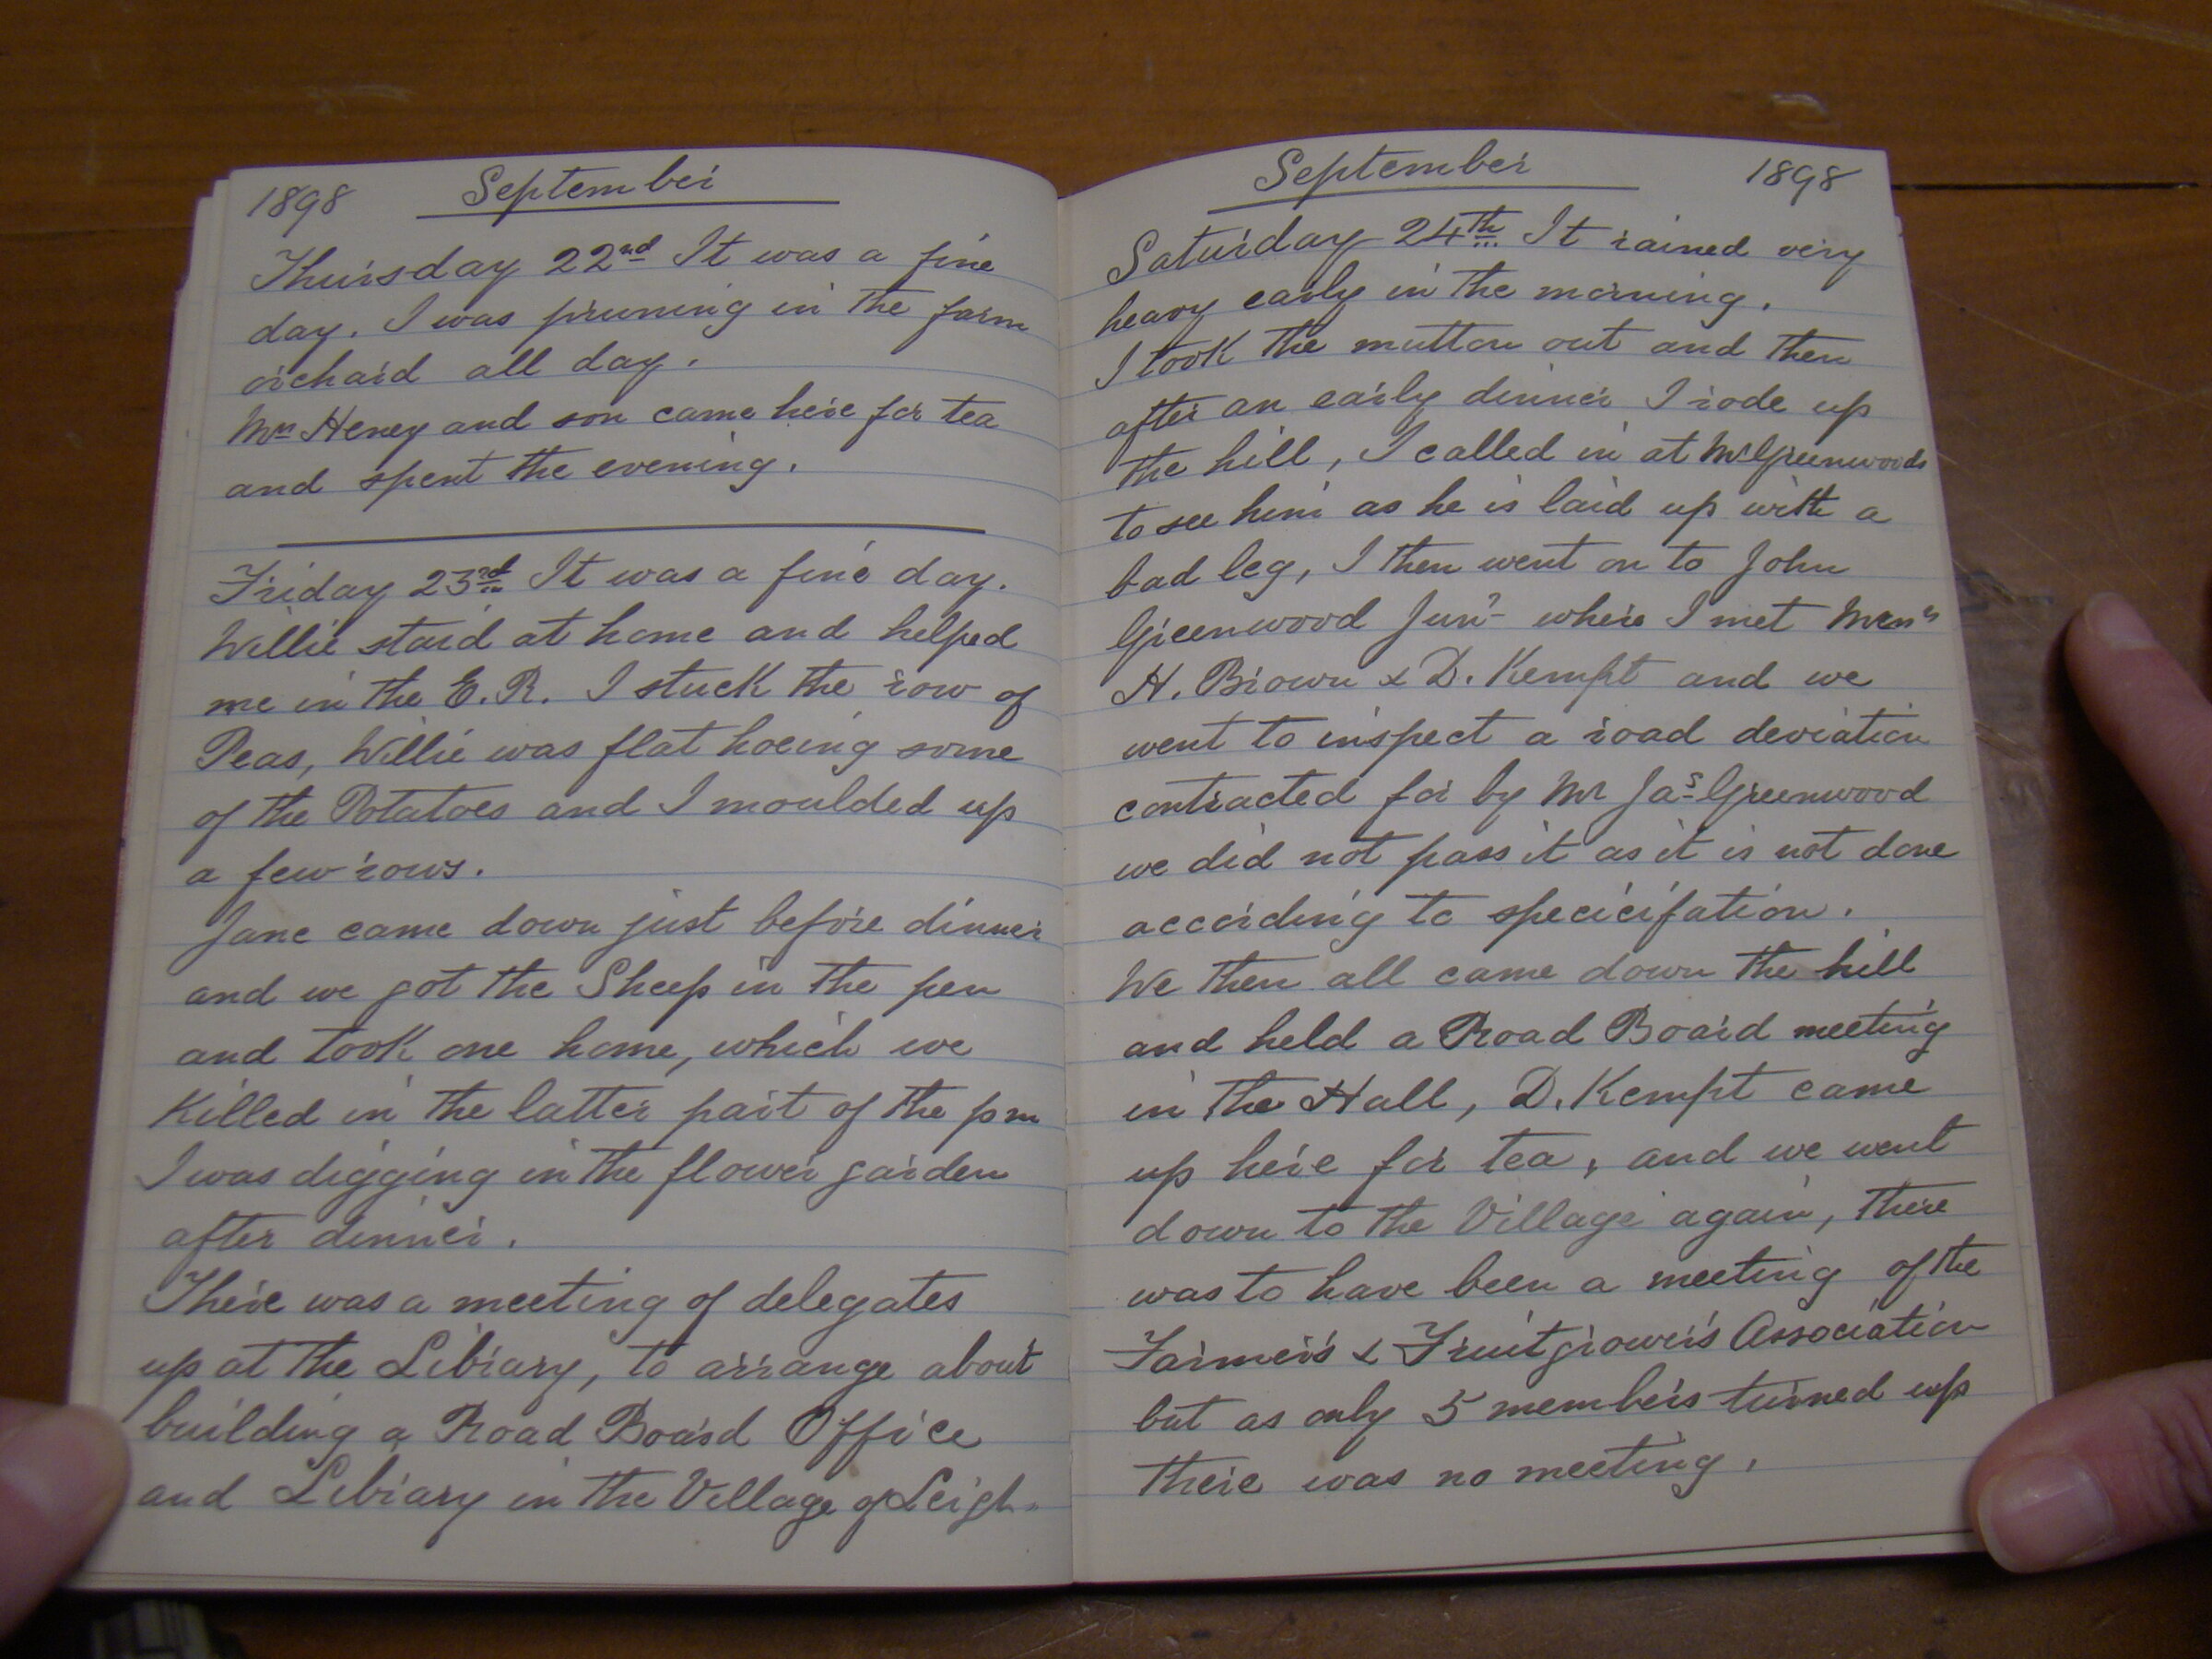 1898 September
Thursday 22nd It was a fine
day. I was pruning in the farm
orchard all day.
Mrs Heney and son came here for tea
and spent the evening.
Friday 23rd It was a fine day.
Willie staid at home and helped
me in the E.R. I stuck the row of
Peas, Willie was flat hoeing some
of the Potatoes and I moulded up
a few rows.
Jane came down just before dinner
and we got the Sheep in the pen
and took one home, which we
Killed in the latter part of the pm
I was digging in the flower garden
after dinner.
There was a meeting of delegates
up at the Libiary, to arrange about
building a Road Board Office
and Libiary in the Village of Leigh.
September 1898
Saturday 24th It rained very
heavy early in the morning.
I took the mutton out and then
after an early dinner I rode up
the hill, I called in at Mr Greenwoods
to see him as he is laid up with a
bad leg, I then went on to John
Greenwood Junr where I met
H. Brown & D. Kempt and we
went to inspect a road deviation
contracted for by Mr Jas Greenwood
we did not pass it as it is not done
according to specicifation.
We then all came down the hill
and held a Road Board meeting
in the Hall, D. Kempt came
up here for tea, and we went
down to the Village again, there
was to have been a meeting of the
Farmer's & Fruitgrower's Association
but as only 5 members turned up
there was no meeting.